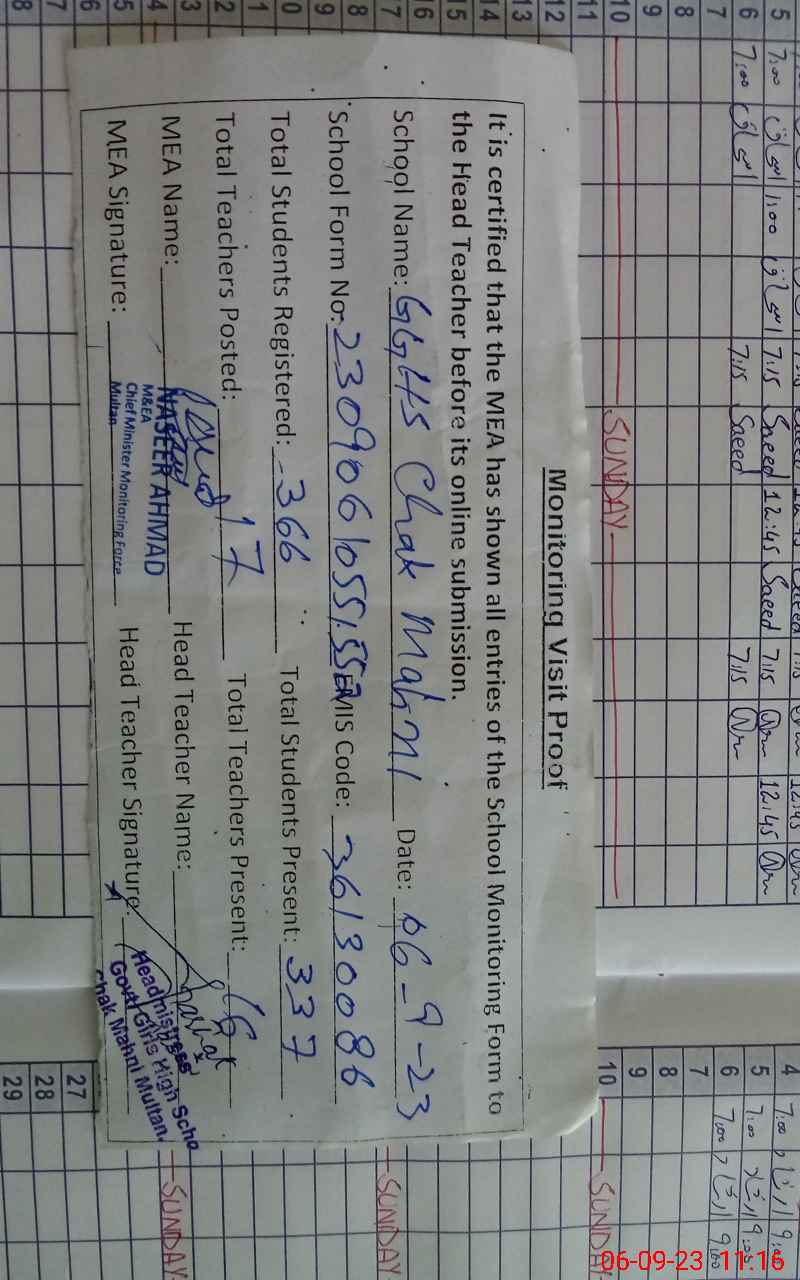 Monitoring Visit Proof
It is certified that the MEA has shown all entries of the School Monitoring Form to
the Head Teacher before its online submission.
School Name: GGHS Chak Mahni Date: 06-9-23
School Form No: EMIS Code: 36130086
Total Students Registered: 366 Total Students Present: 337
Total Teachers Posted: 17 Total Teachers Present: 16
MEA Name: NASEER AHMAD Head Teacher Name:
M&EA
Chief Minister Monitoring Force
Multan
MEA Signature: Head Teacher Signature:
Headmistress
Govt Girls High Scho
Chak Mahni Multan.
5 7:00 1:00 7:15 Saeed 12:45 Saeed 7:15 12:45
6 7:00 7:15 Saeed 7:15
7
8
9
10 SUNDAY
11
12
13
14
15
16
17
8
9
0
1
2
3
4
5
6
7
8
4 7:00
5 7:00
6 7:00 9:00
7
8
9
10 SUNDAY
SUNDAY
SUNDAY
27
28
29
06-09-23 11:16